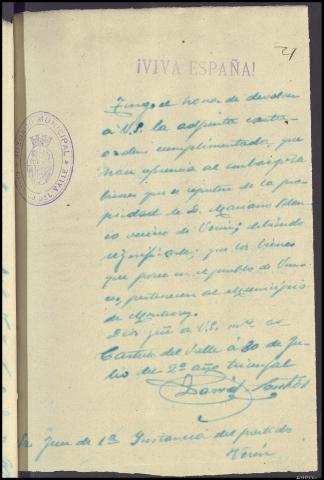 21
¡VIVA ESPAÑA!
Tengo el honor de devolver
a V.S. la adjunta carta
orden cumplimentada, que
hace referencia al embargo de
bienes que se reputen de la pro
piedad de D. Mariano Blan
co vecino de Verin; debiendo
significarle, que los bienes
que posee en el pueblo de
pertenecen al Municipio
de Monterrey.
Dios gue a V.S. ms as
Castrelo del Valle a 30 de Ju
lio del 2º año triunfal
David Santos
Sr. Juez de 1ª Instancia del partido
Verin
MUNICIPAL
DEL VALLE